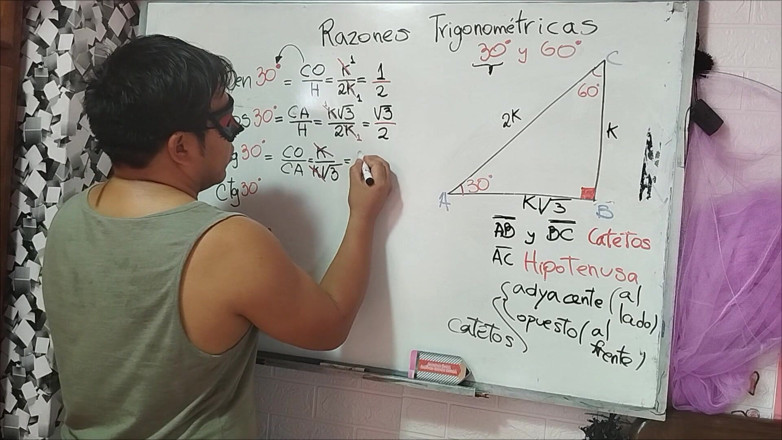 Razones Trigonométricas
30° y 60°
en 30° = CO/H = K/2K = 1/2
os 30° = CA/H = K√3/2K = √3/2
g 30° = CO/CA = K/K√3 =
Ctg 30°
C
60°
2K
K
A
30°
K√3
B
AB y BC Catetos
AC Hipotenusa
Catetos
adyacente (al lado)
opuesto (al frente)